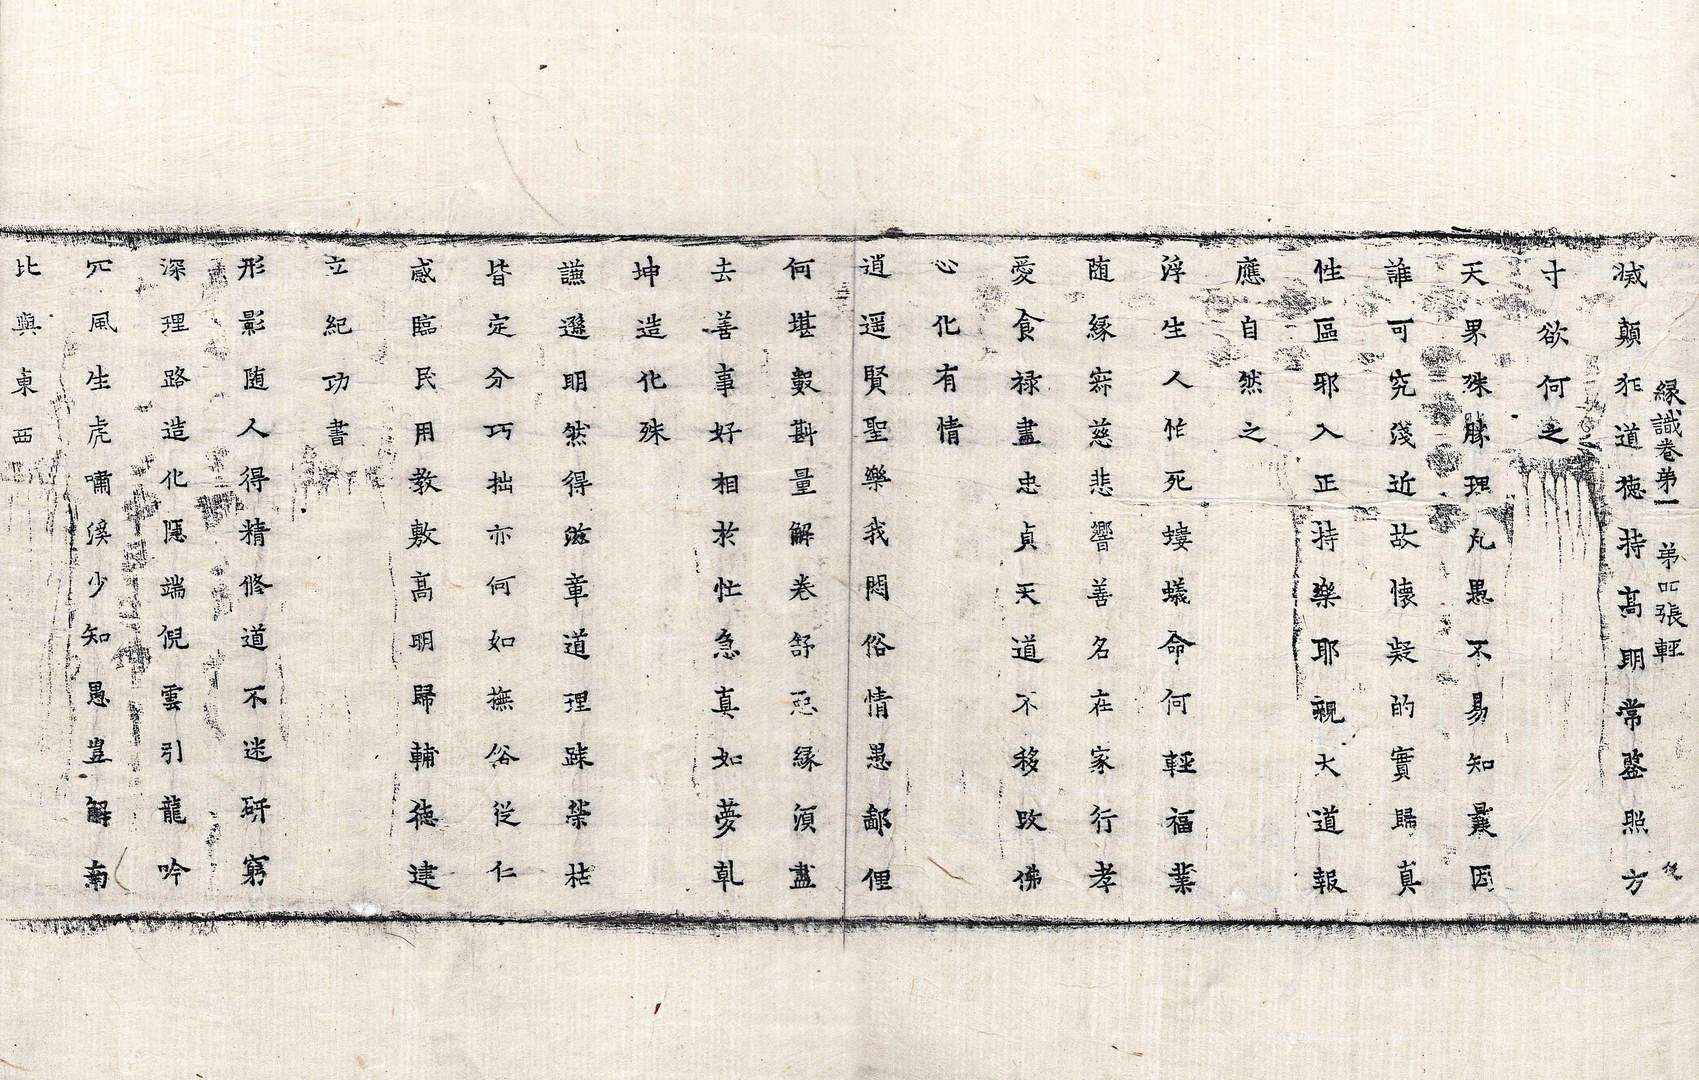 緣識卷第一 第四張 輕
減顛狂道德持高明常鑒照方
寸欲何之
天界殊勝理凡愚不易知曩因
誰可究淺近故懷疑的實歸真
性區耶入正持樂耶親大道報
應自然之
浮生人怕死螻蟻命何輕福業
随緣察慈悲響善名在家行孝
愛食禄盡忠貞天道不移改佛
心化有情
逍遥賢聖樂我悶俗情愚鄙俚
何堪數斟量解卷舒惡緣須盡
去善事好相於忙急真如夢乹
坤造化殊
謙遜明然得滋章道理踈榮枯
皆定分巧拙亦何如撫俗從仁
感臨民用教敷高明歸輔德建
立紀功書
形影随人得精修道不迷研窮
深理路造化隱端倪雲引龍吟
冗風生虎嘯溪少知愚豈解南
北與東西